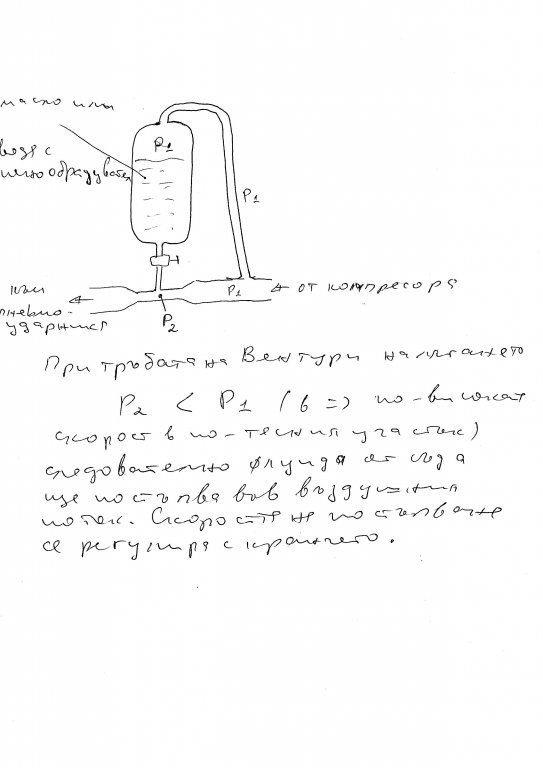 масло или
P1
вода с
пенообразувател
P1
към
P1
от компресора
пневмо-
ударника
P2
При тръбата на Вентури налягането
P2 < P1 (в => по-висока
скорост в по-тесния участък)
следователно флуида от съда
ще постъпва във въздушния
поток. Скоростта на постъпване
се регулира с кранчето.